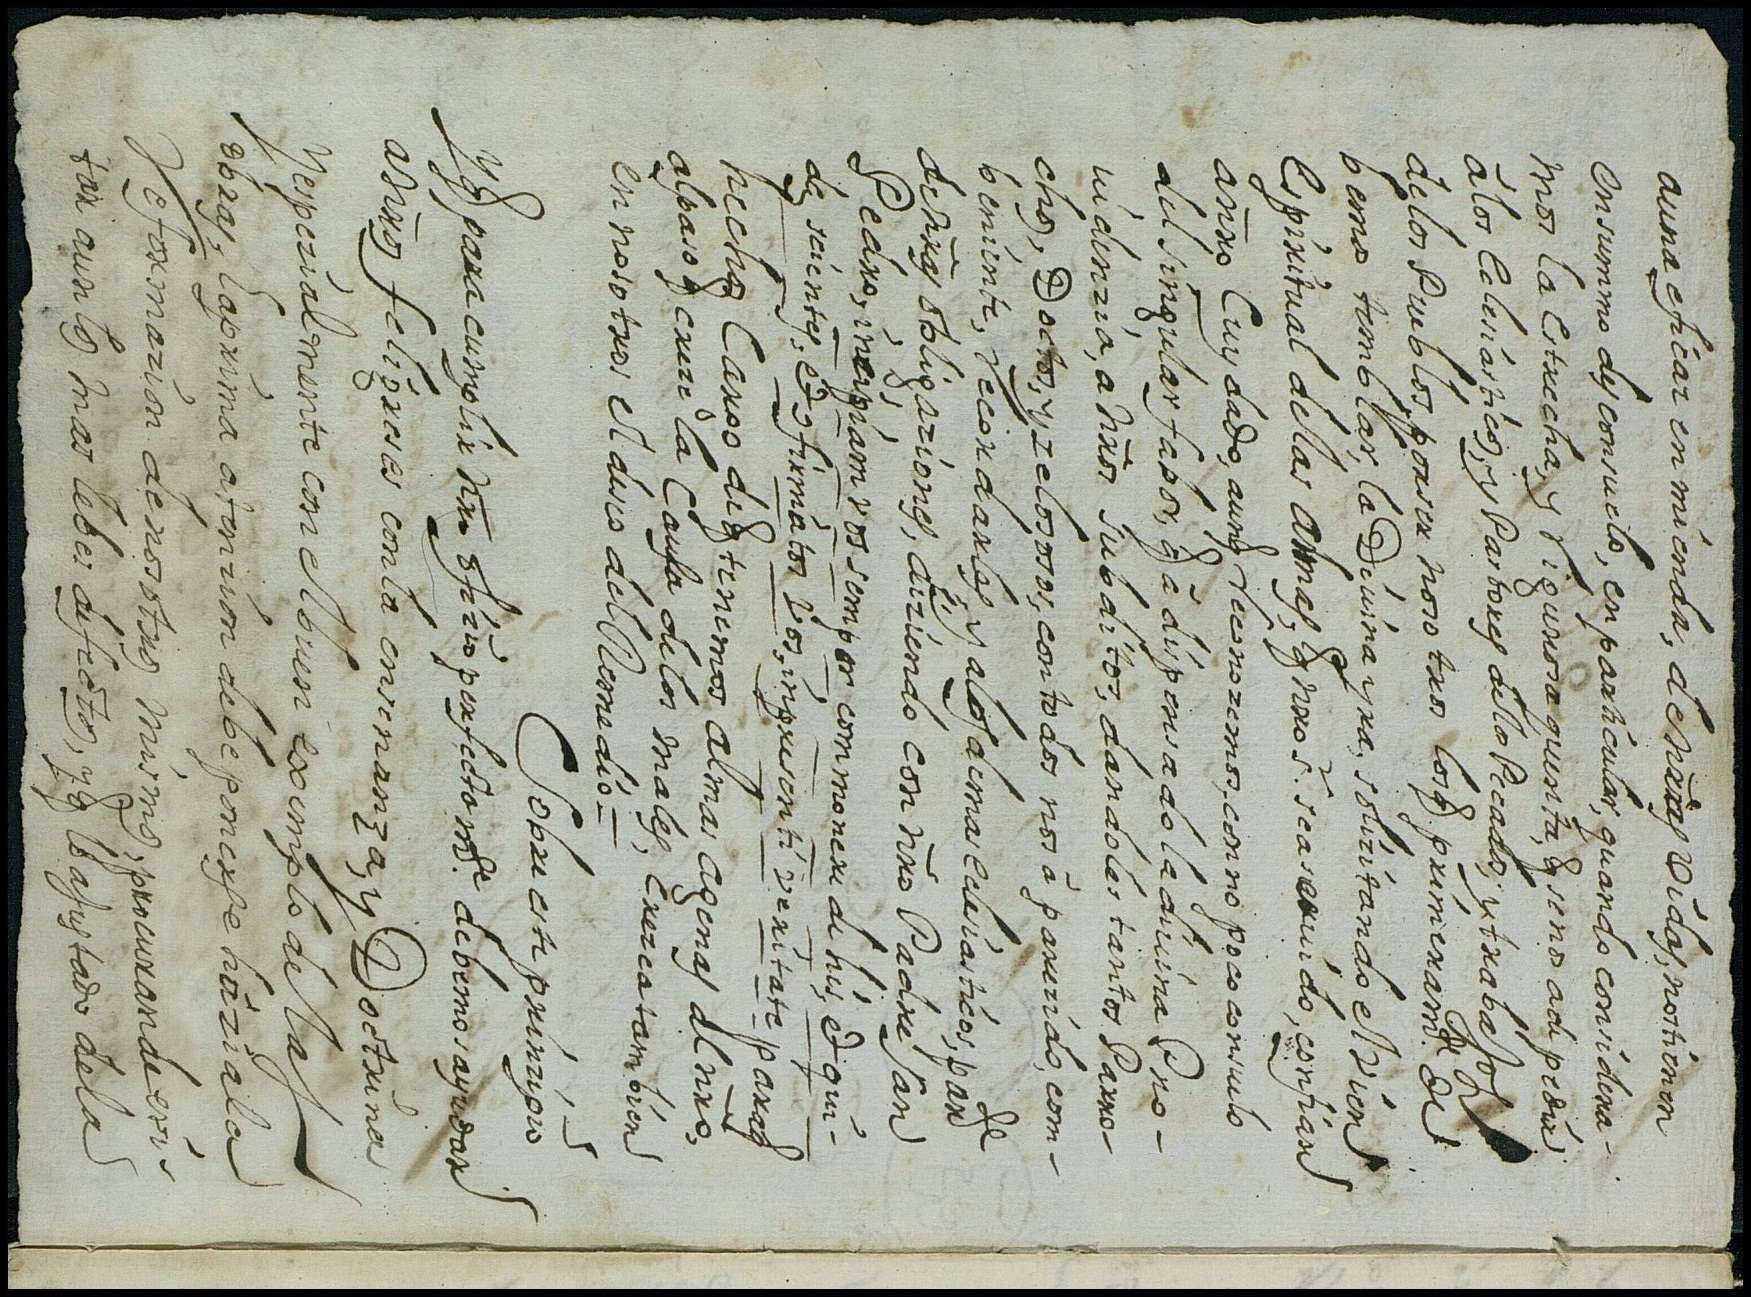 a una eficaz enmienda, de nr̄as vidas, nos tienen
en summo desconsuelo, en particular, quando considera-
mos la estrecha, y rigurosa quenta, q̄ se nos a de pedir,
a los eclesiásticos, y Pastores de lo Pecado, y trabajos
de los Pueblos, por ser nosotros los q̄ primeramᵗᵉ de-
bemos temblar, la Divina yra, solizitando el vien
espiritual de las almas, q̄ nr̄o s.ʳ sea servido, confiar
a nr̄o Cuydado, aunq̄ reconozemos, con no poco consuelo
del singular fabor, q̄ a dispensado la divina Pro-
uidenzia, a nr̄os subditos, dandoles tantos Parro-
chos, Doctos, y zelosos, con todo nos a parezido, com-
beniente, recordarles, y a los demas eclesiasticos, parᵗᵉ
de nr̄as obligaziones, diziendo con nr̄o Padre san
Pedro, incipiam vos semper commonere de his, et qui-
dē scientes, et confirmatos vos, in presenti veritate, para q̄
hechos Cargo de q̄ tenemos almas agenas al nr̄o,
al paso q̄ creze la Causa de los males, crezca tambien
en nosotros el duo del Remedio
Sobre este prinzipio
y q̄ para cumplir nr̄o ofizio perfectamᵗᵉ debemos ayudar
a nr̄os feligreses con la ensenanza, y Doctrina
y espezialmente con el buen exemplo de las
obras, la prima atenzion debe ponerse hazia la
Reformazion de nosotros mismos, procurando evi-
tar aun lo mas lebes defectos, y q̄ lo ajustado de la